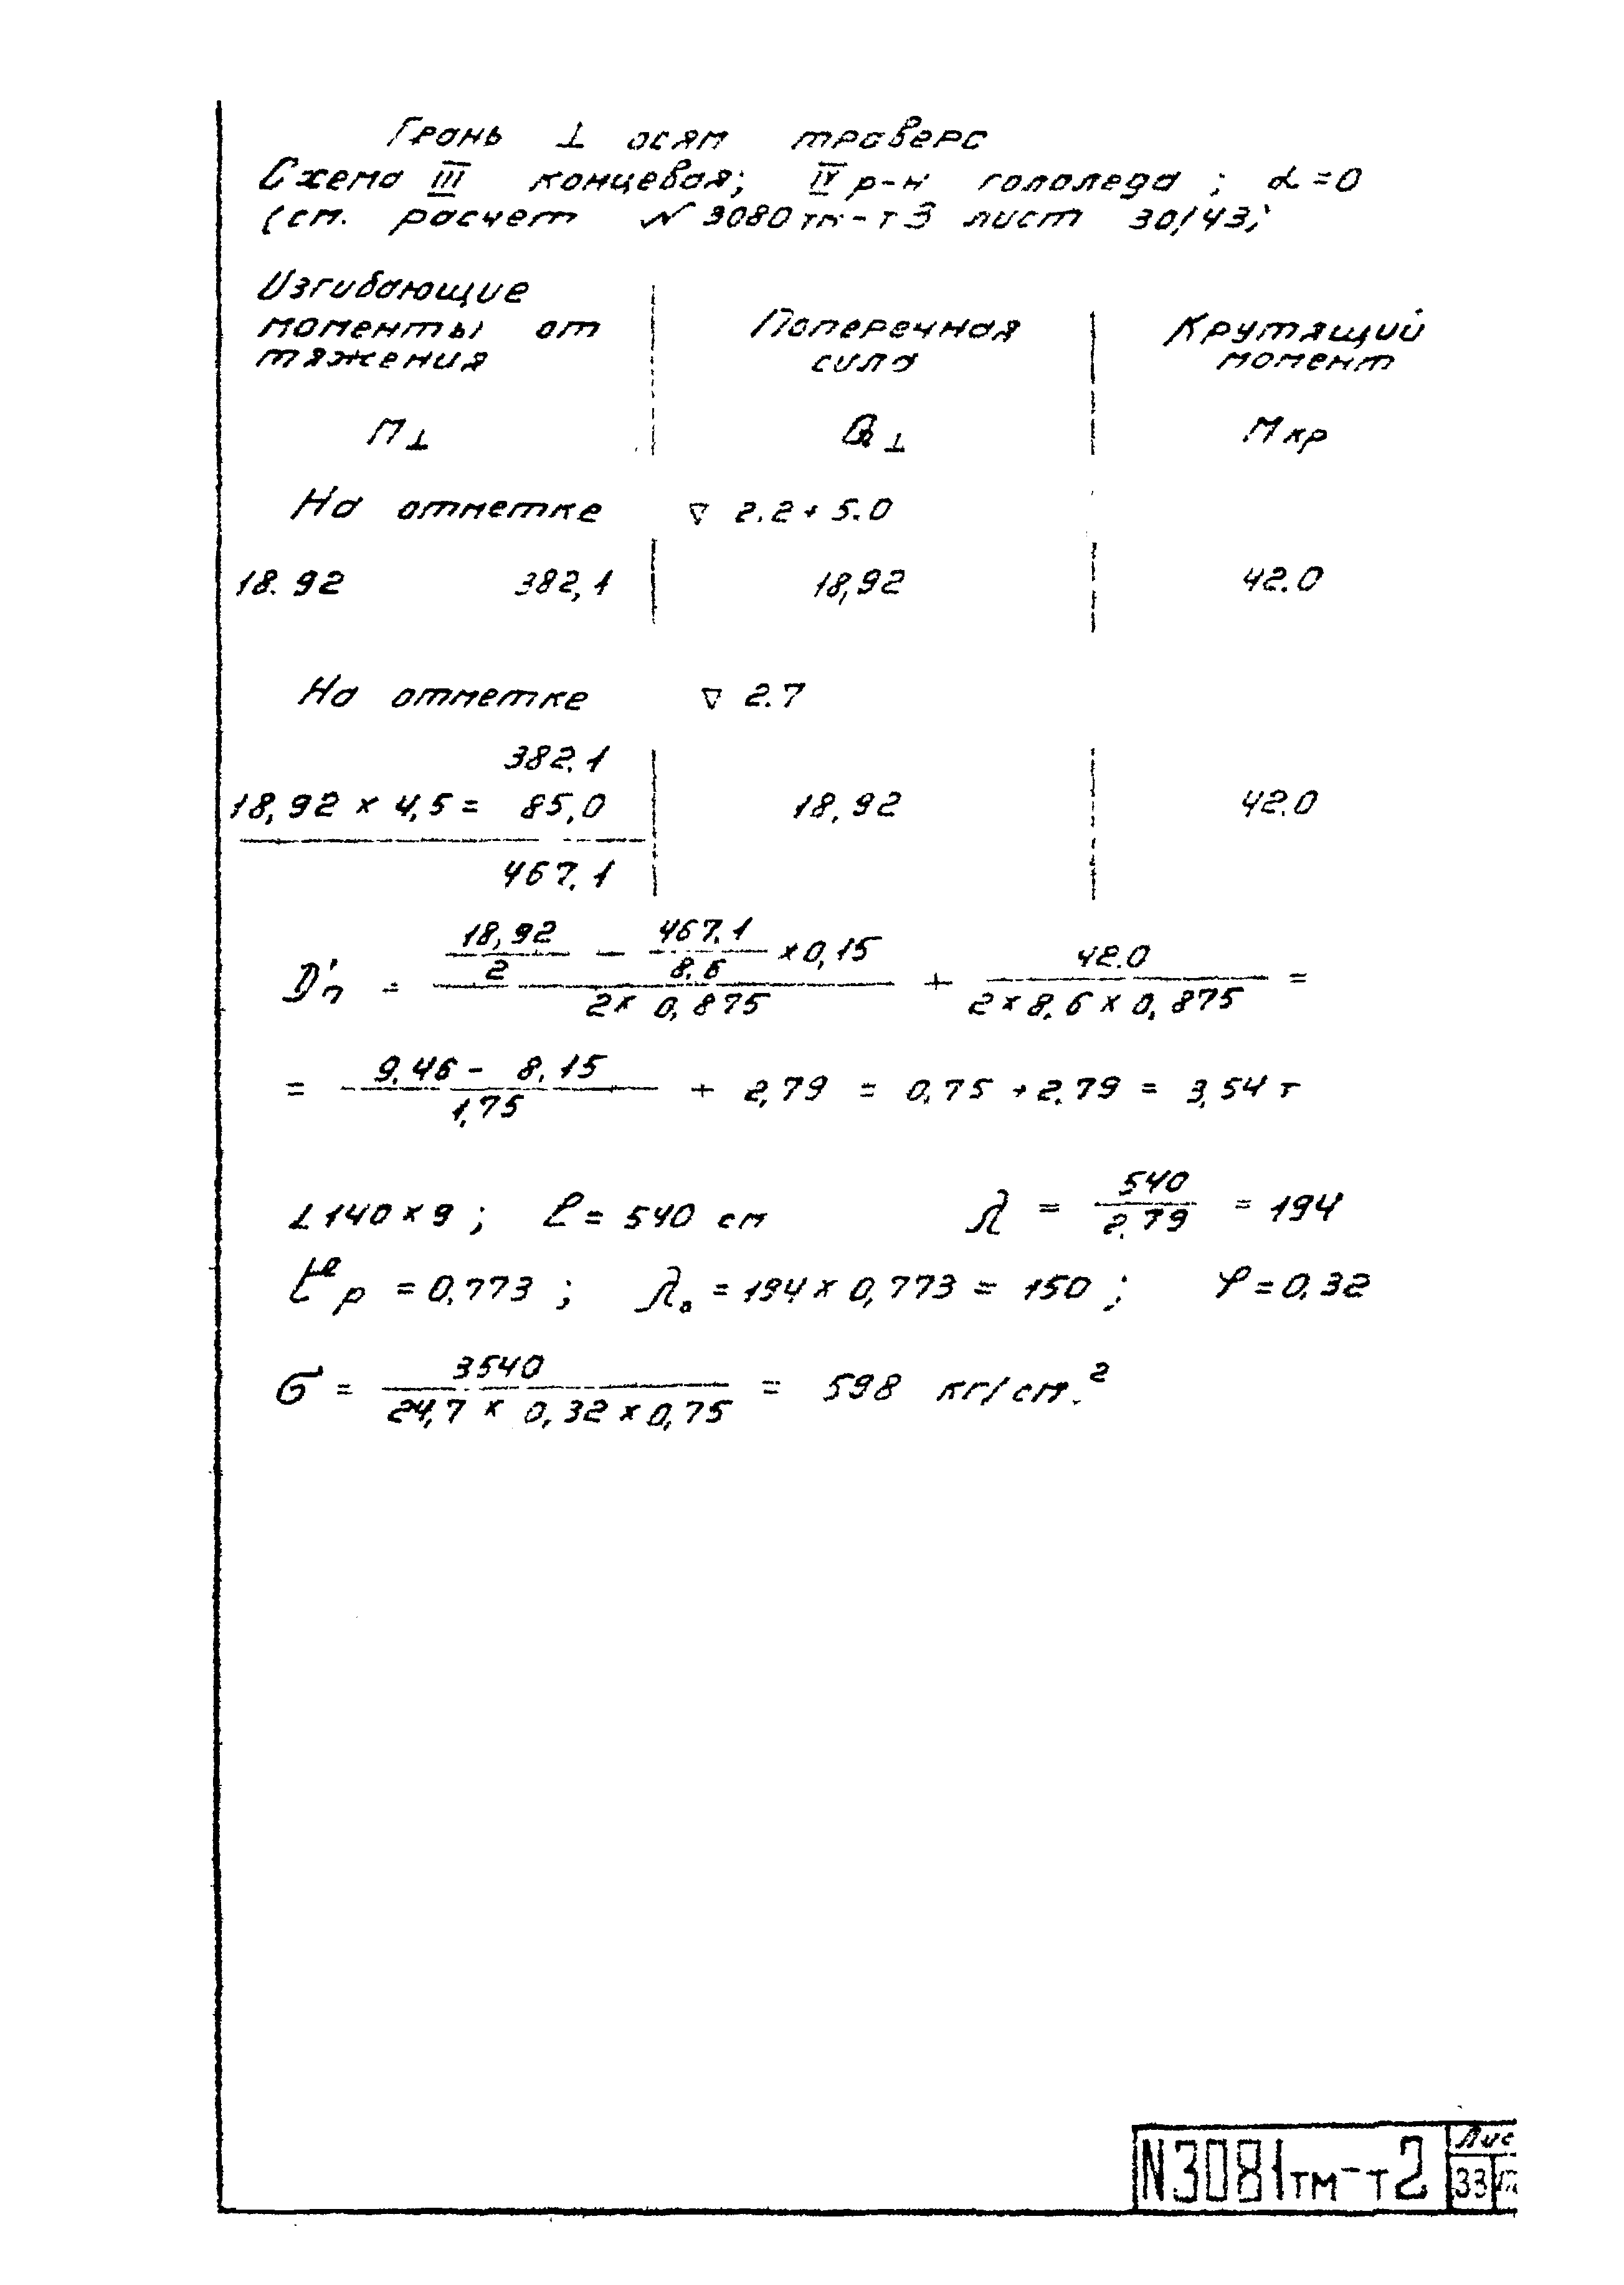 Грань ⊥ осям траверс
Схема III концевая; IV р-н гололеда ; α=0
(см. расчет № 3080тм-т3 лист 30/43)
Изгибающие моменты от тяжения
Поперечная сила
Крутящий момент
M⊥
Q⊥
Mкр
На отметке ▽ 2.2+5.0
18.92 382,1 18,92 42.0
На отметке ▽ 2.7
382.1
18,92 × 4,5 = 85,0 18,92 42.0
467.1
D'п = (18,92/2 − 467.1/8.6 × 0,15)/(2 × 0,875) + 42.0/(2 × 8.6 × 0,875) =
= (9.46 − 8.15)/1,75 + 2,79 = 0,75 + 2.79 = 3,54 т
L 140×9 ; ℓ = 540 см λ = 540/2.79 = 194
μр = 0,773 ; λ₀ = 194 × 0,773 = 150 ; φ = 0.32
σ = 3540/(24,7 × 0,32 × 0,75) = 598 кг/см.²
N3081тм-т2
Лис
33